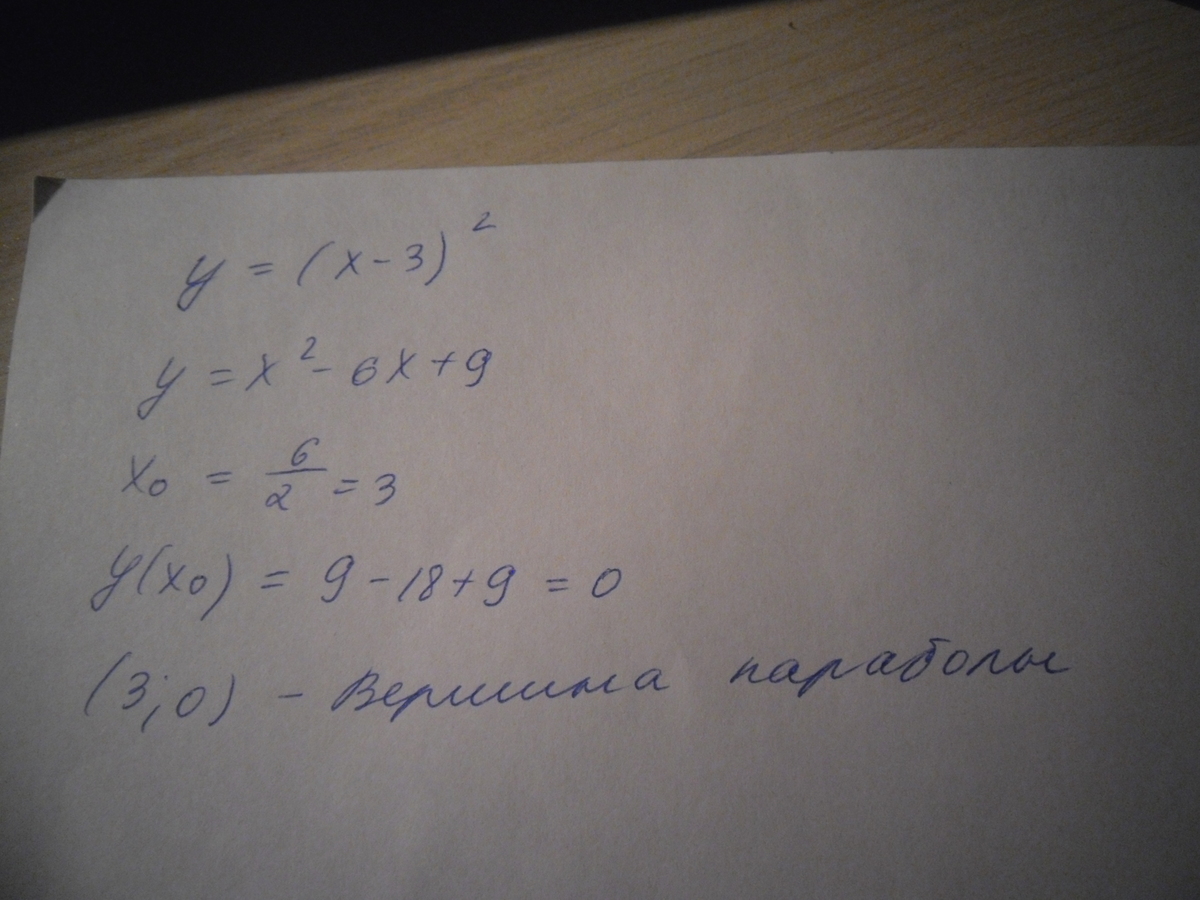 y = (x-3)²
y = x² - 6x + 9
x₀ = 6/2 = 3
y(x₀) = 9 - 18 + 9 = 0
(3;0) - Вершина параболы